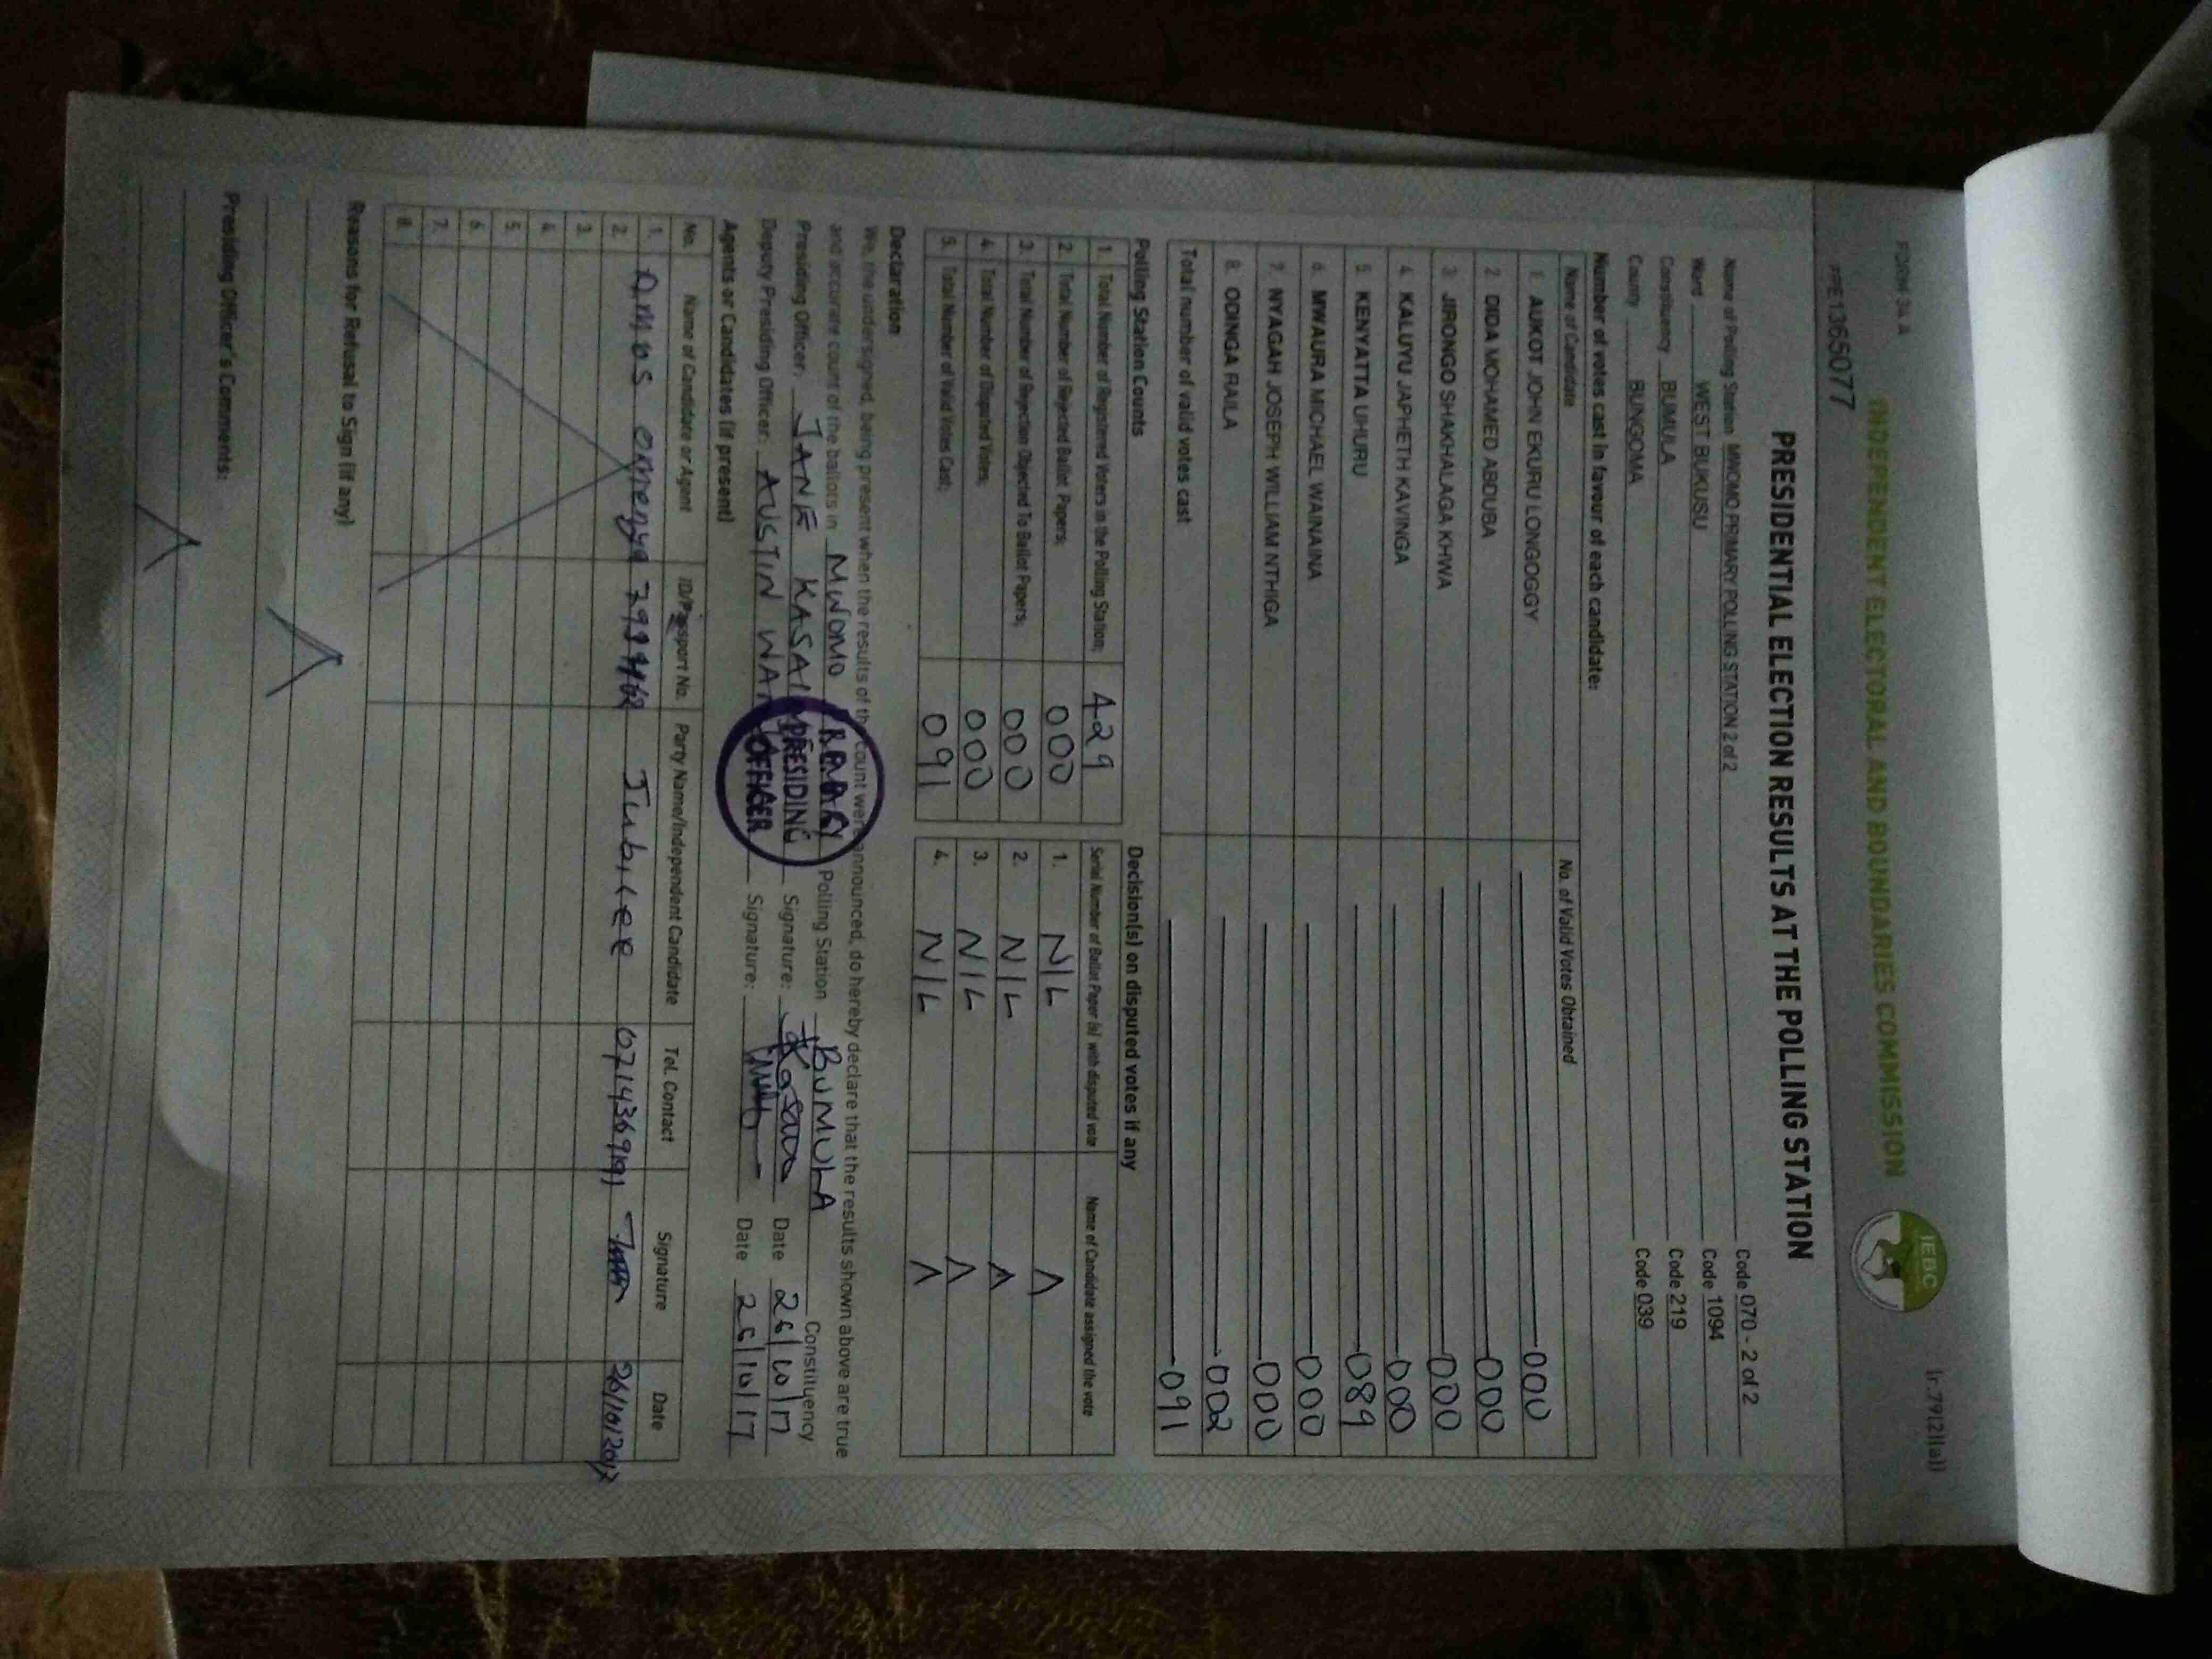 FORM 34 A
(r.79(2)(a))
INDEPENDENT ELECTORAL AND BOUNDARIES COMMISSION
IEBC
PRESIDENTIAL ELECTION RESULTS AT THE POLLING STATION
Name of Polling Station MWOMO PRIMARY POLLING STATION 2 of 2 Code 070 - 2 of 2
Ward WEST BUKUSU Code 1094
Constituency BUMULA Code 219
County BUNGOMA Code 039
Number of votes cast in favour of each candidate:
Name of Candidate No. of Valid Votes Obtained
1. AUKOT JOHN EKURU LONGOGGY 000
2. DIDA MOHAMED ABDUBA 000
3. JIRONGO SHAKHALAGA KHWA 000
4. KALUYU JAPHETH KAVINGA 000
5. KENYATTA UHURU 089
6. MWAURA MICHAEL WAINAINA 000
7. NYAGAH JOSEPH WILLIAM NTHIGA 000
8. ODINGA RAILA 002
Total number of valid votes cast 091
Polling Station Counts
1. Total Number of Registered Voters in the Polling Station; 429
2. Total Number of Rejected Ballot Papers; 000
3. Total Number of Rejection Objected To Ballot Papers; 000
4. Total Number of Disputed Votes; 000
5. Total Number of Valid Votes Cast; 091
Decision(s) on disputed votes if any
Serial Number of Ballot Paper (s) with disputed vote Name of Candidate assigned the vote
1. NIL
2. NIL
3. NIL
4. NIL
Declaration
We, the undersigned, being present when the results of the count were announced, do hereby declare that the results shown above are true
and accurate count of the ballots in MWOMO PRIMARY Polling Station BUMULA Constituency
Presiding Officer: JANE KASAI Signature: Date 26/10/17
Deputy Presiding Officer: AUSTIN Signature: Date 26/10/17
PRESIDING
OFFICER
Agents or Candidates (if present)
No. Name of Candidate or Agent ID/Passport No. Party Name/Independent Candidate Tel. Contact Signature Date
1. Amos Omenya Jubilee 26/10/2017
2.
3.
4.
5.
6.
7.
8.
Reasons for Refusal to Sign (if any)
Presiding Officer's Comments: